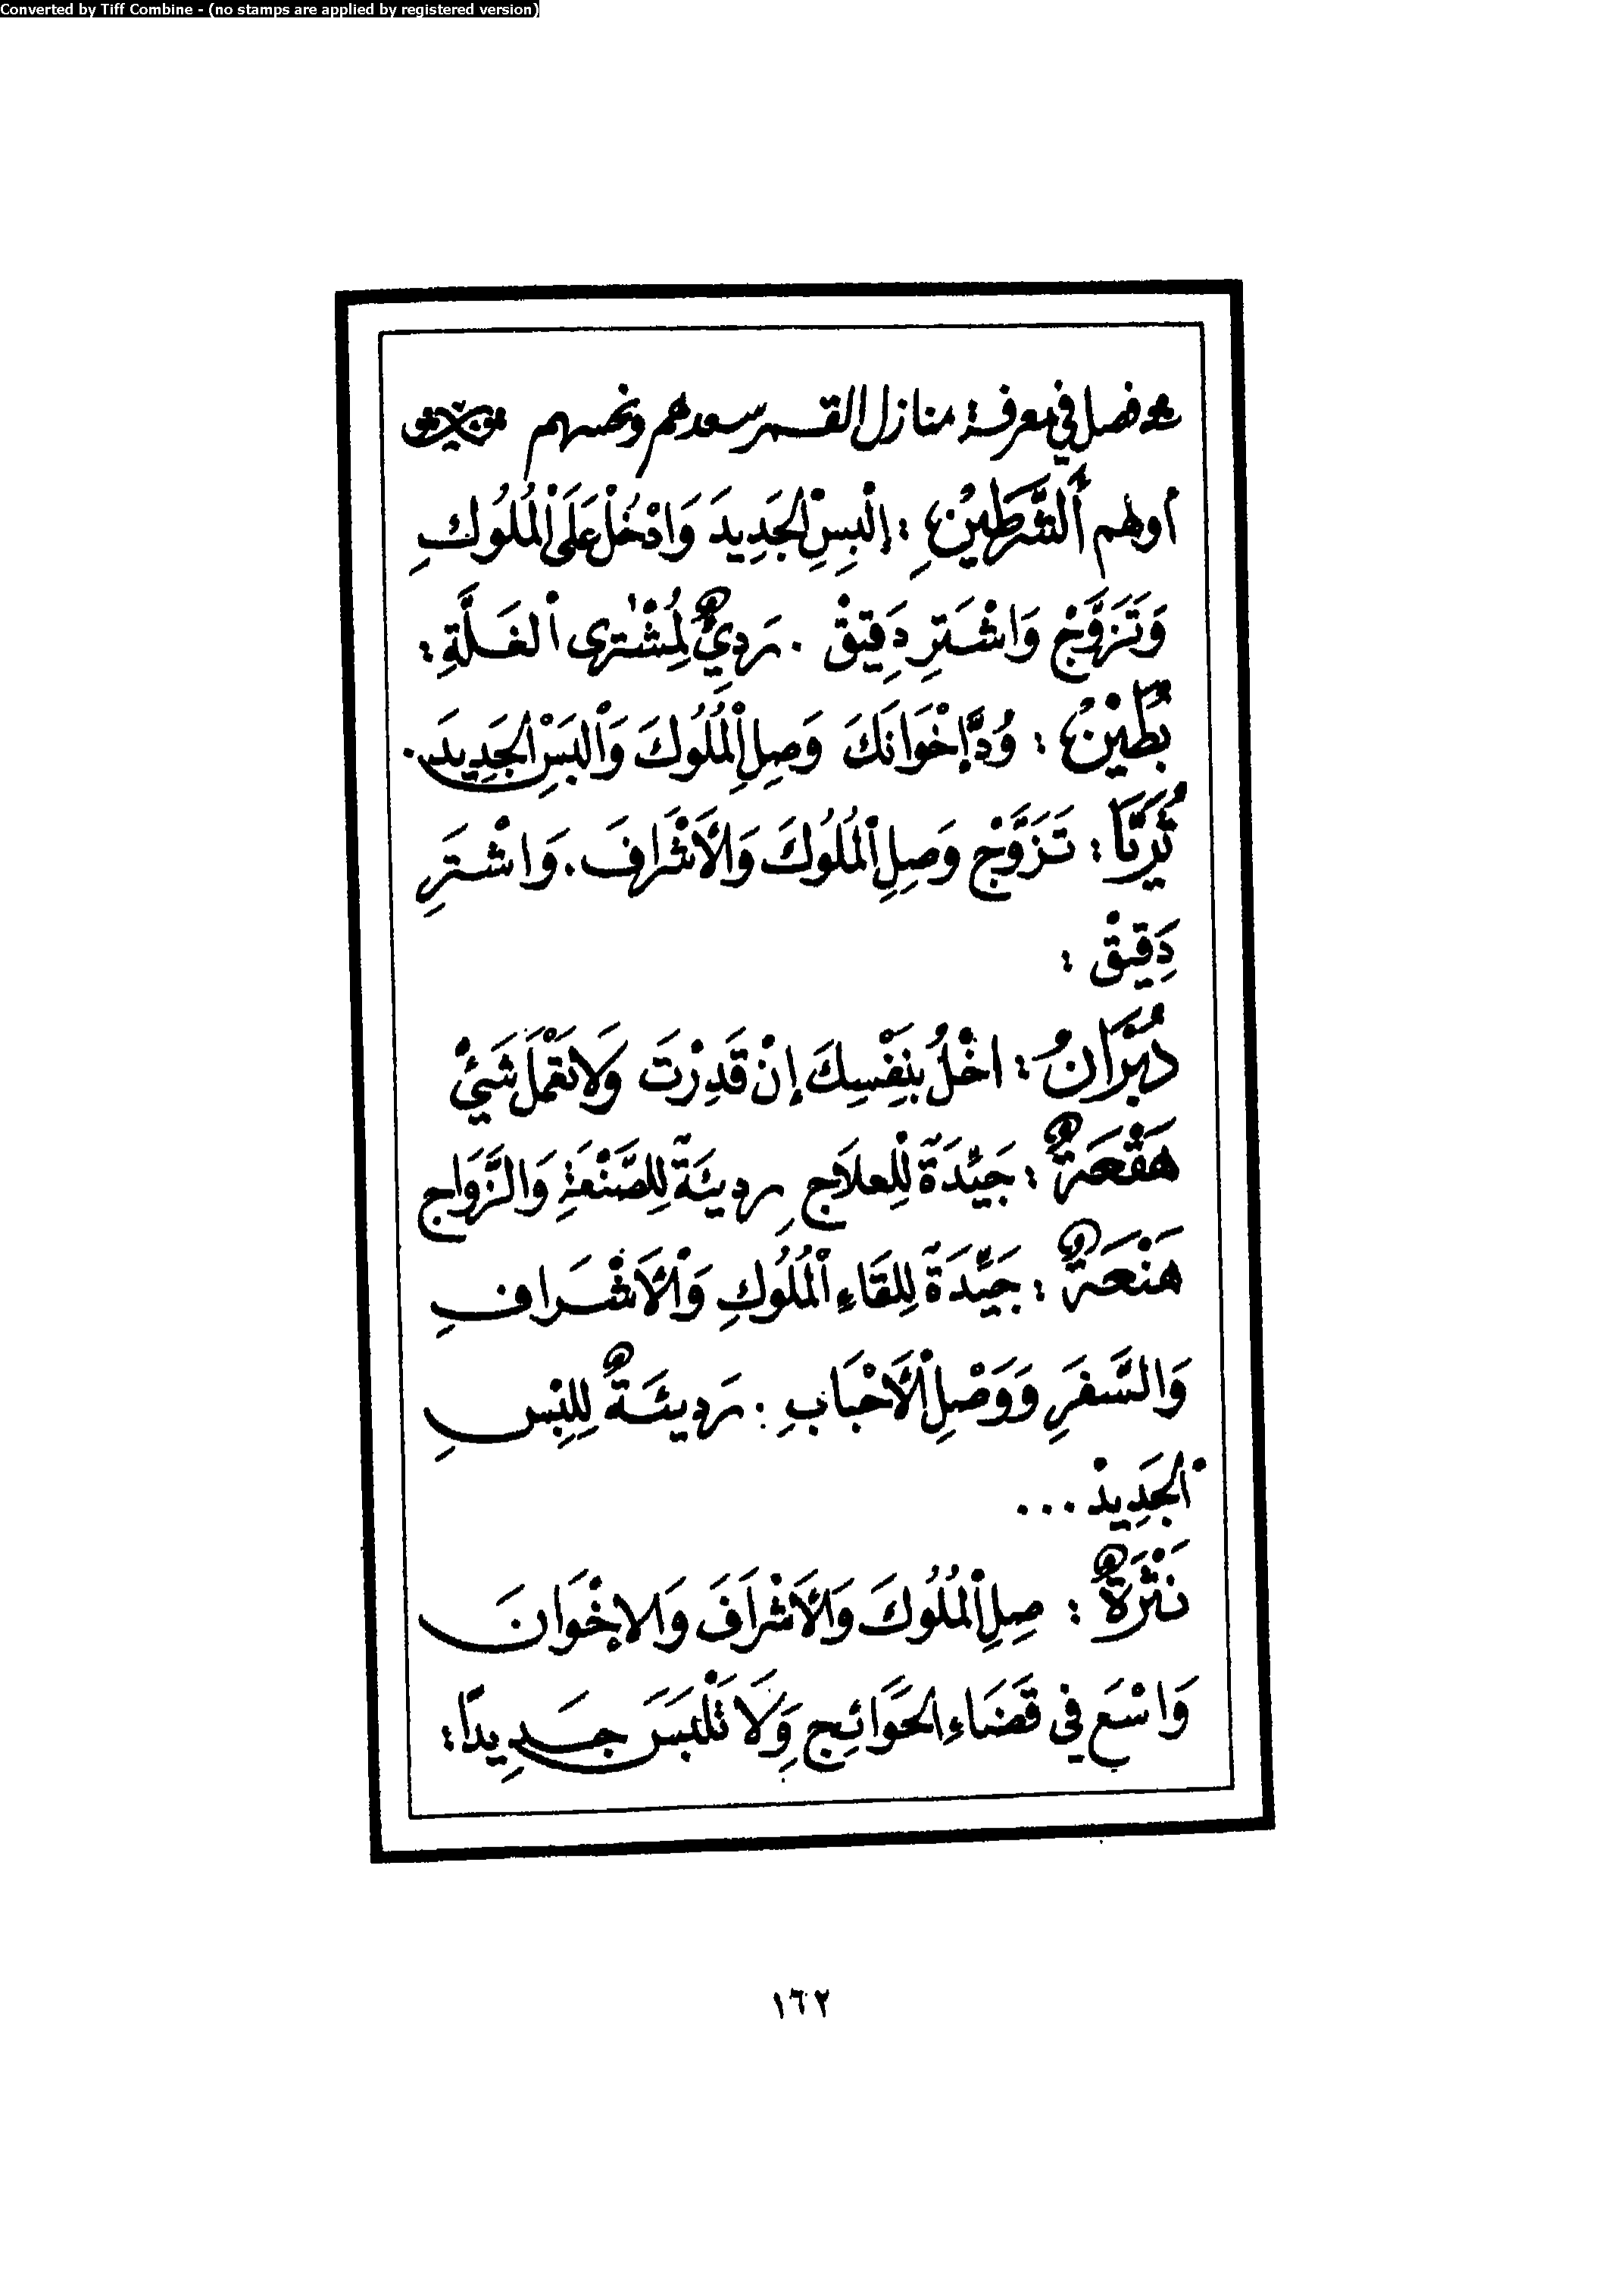 Converted by Tiff Combine - (no stamps are applied by registered version)
فصل في معرفة منازل القمر سعدهم ونحسهم
اولهم أَلشَّرَطَيْنِ : إِلْبِسِ الجَدِيدَ وَادْخُلْ عَلَى الْمُلُوكِ
وَتَزَوَّجْ وَاشْتَرِ دَقِيقْ . رَدِيٌّ لِمُشْتَرِى الْغَلَّةِ :
بُطَيْنُ : وُدَّ إِخْوَانَكَ وَصِلِ الْمُلُوكَ وَالْبَسْ الجَدِيدَ .
ثُرَيَّا : تَزَوَّجْ وَصِلِ الْمُلُوكَ وَالْأَشْرَافَ . وَاشْتَرِ
دَقِيقْ :
دُبْرَانُ : اخْلُ بِنَفْسِكَ إِنْ قَدِرْتَ وَلَا تَعْمَلْ شَيْئْ
هَقْعَةٌ : جَيِّدَةٌ لِلْعِلَاجِ رديئَةٌ لِلصَّنْعَةِ وَالزَّوَاجِ
هَنْعَةٌ : جَيِّدَةٌ لِلِقَاءِ الْمُلُوكِ وَالْأَشْرَافِ
وَالسَّفَرِ وَوَصْلِ الْأَحْبَابِ : رَدِيئَةٌ لِلِبْسِ
الْجَدِيدْ ...
نَثْرَةٌ : صِلِ الْمُلُوكَ وَالْأَشْرَافَ وَالإِخْوَانَ
وَاسْعَ فِي قَضَاءِ الحَوَائِجِ وَلَا تَلْبَسَ جَدِيدًا :
١٦٢